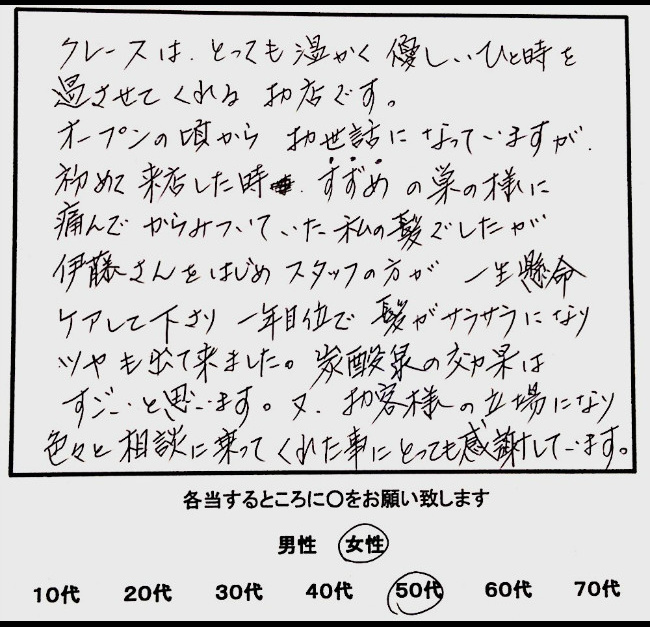 クレースは、とっても温かく優しいひと時を
過させてくれる お店です。
オープンの頃から お世話になっていますが、
初めて来店した時、すずめの巣の様に
痛んで からみついていた私の髪でしたが
伊藤さんをはじめスタッフの方が 一生懸命
ケアして下さり 一年目位で 髪がサラサラになり
ツヤも出て来ました。炭酸泉の効果は
すごいと思います。又、お客様の立場になり
色々と相談に乗ってくれた事にとっても感謝しています。
各当するところに〇をお願い致します
男性 女性
10代 20代 30代 40代 50代 60代 70代